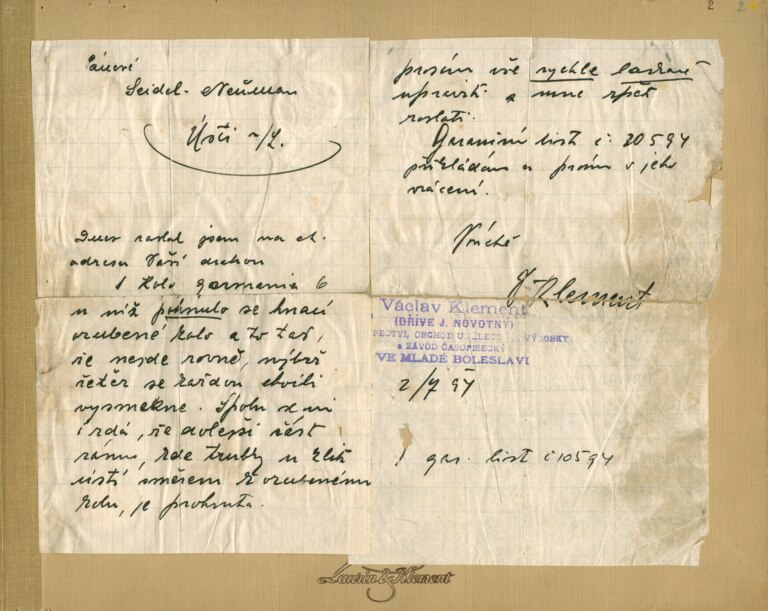 Pánové
Seidel - Neuman
Ústí n/L.
Dnes zaslal jsem na ct.
adresu Vaší drahou
1 kolo germania 6
u niž pohnulo se hnací
ozubené kolo a to tak,
že nejde rovně, nýbrž
řetěz se každou chvíli
vysmekne. Spolu se mi
i zdá, že dolejší část
rámu, kde trubky u klik
ústí směrem k ozubenému
kolu, je prohnuta.
prosím vše rychle laskavě
upraviti a mne zpět
zaslati.
Garanční list č. 20594
přikládám a prosím o jeho
vrácení.
V úctě
V Klement
Václav Klement
(DŘÍVE J. NOVOTNÝ)
VÝROBKY
a ZÁVOD ČASOPISECKÝ
VE MLADÉ BOLESLAVI
2/7 94
1 gar. list č 10594
Laurin & Klement
2
2